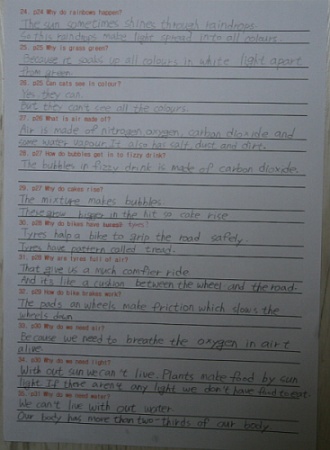 24. p24 Why do rainbows happen?
The sun sometimes shines through raindrops.
So this raindrops make light spread into all colours.
25. p25 Why is grass green?
Because it soaks up all colours in white light apart
from green.
26. p25 Can cats see in colour?
Yes they can.
But they can't see all the colours.
27. p26 What is air made of?
Air is made of nitrogen, oxygen, carbon dioxide and
some water vapour. It also has salt, dust and dirt.
28. p27 How do bubbles get in to fizzy drink?
The bubbles in fizzy drink is made of carbon dioxide.
29. p27 Why do cakes rise?
The mixture makes bubbles.
These grow bigger in the hot so cake rise
30. p28 Why do bikes have tyres?
Tyres help a bike to grip the road safely.
Tyres have pattern called tread.
31. p28 Why are tyres full of air?
That give us a much comfier ride.
And it's like a cushion between the wheel and the road.
32. p29 How do bike brakes work?
The pads on wheels make friction which slows the
wheels down
33. p30 Why do we need air?
Because we need to breathe the oxygen in air t
alive
34. p30 Why do we need light?
With out sun we can't live. Plants make food by sun
light. If there aren't any light we don't have food to eat.
35. p31 Why do we need water?
We can't live with out water
Our body has more than two-thirds of our body